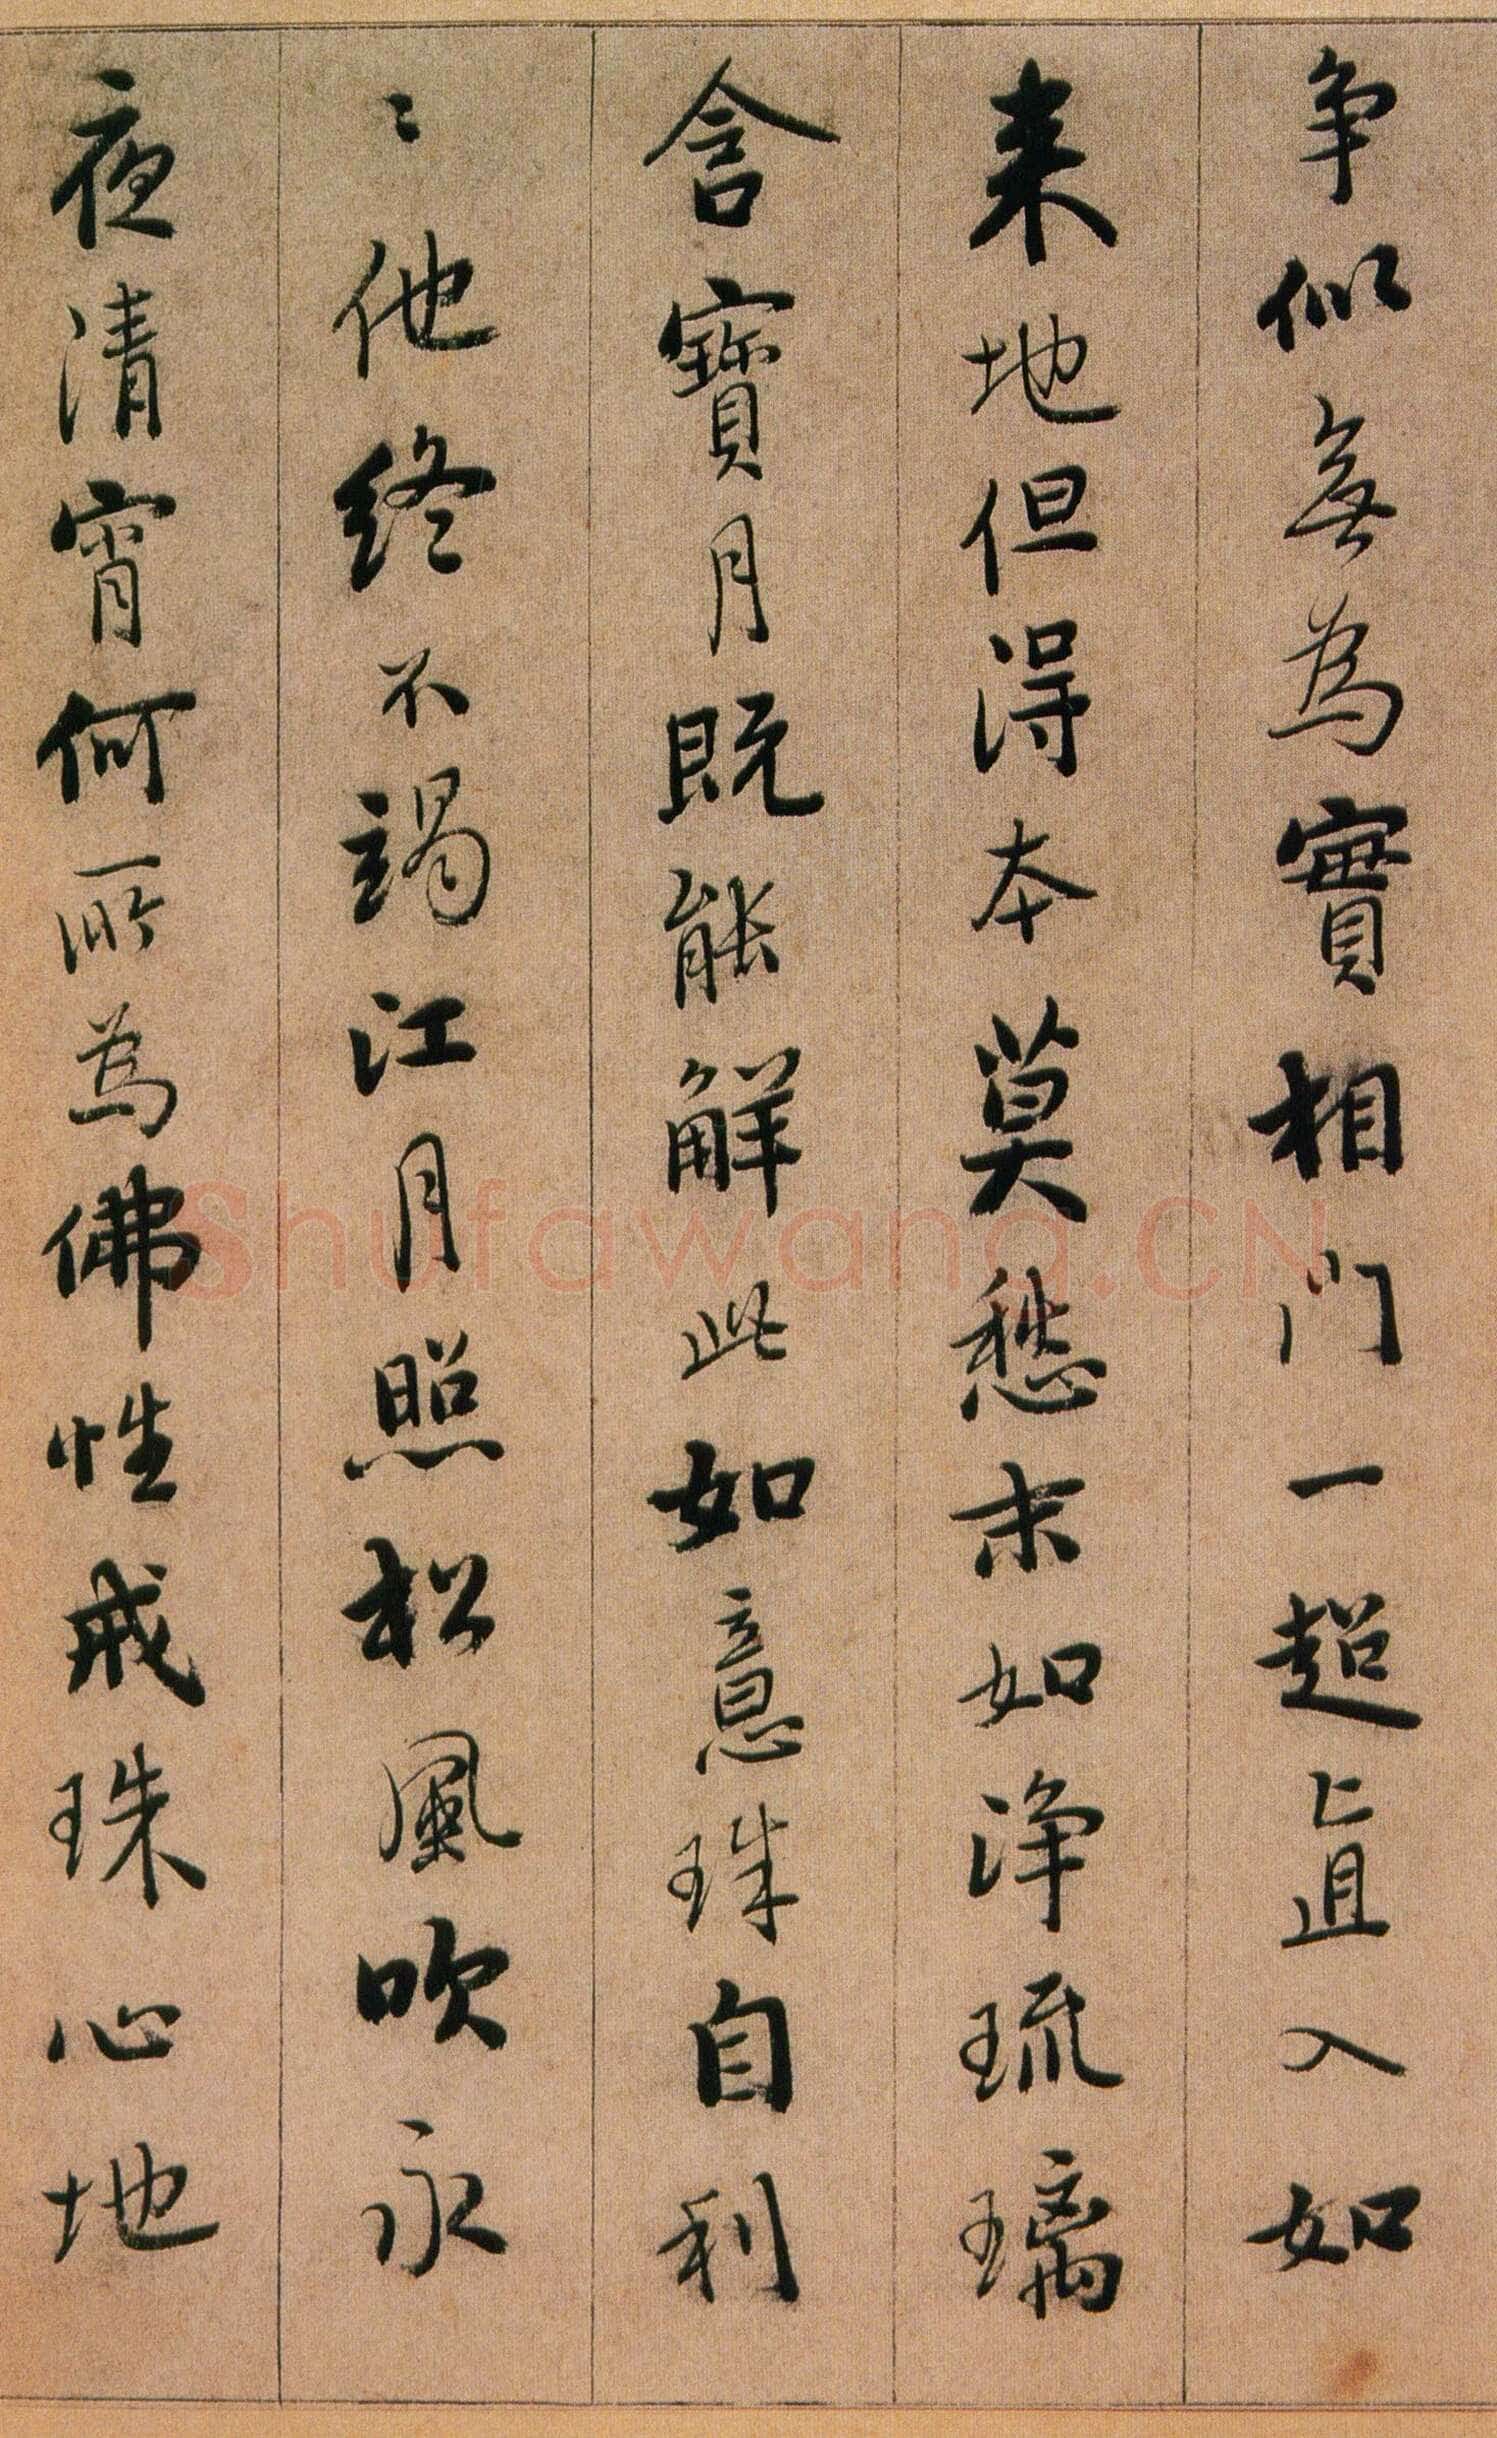 争似無為實相門一超直入如
来地但得本莫愁末如淨琉璃
含寶月既能解此如意珠自利
〻他終不竭江月照松風吹永
夜清宵何所為佛性戒珠心地
Shufawang.CN